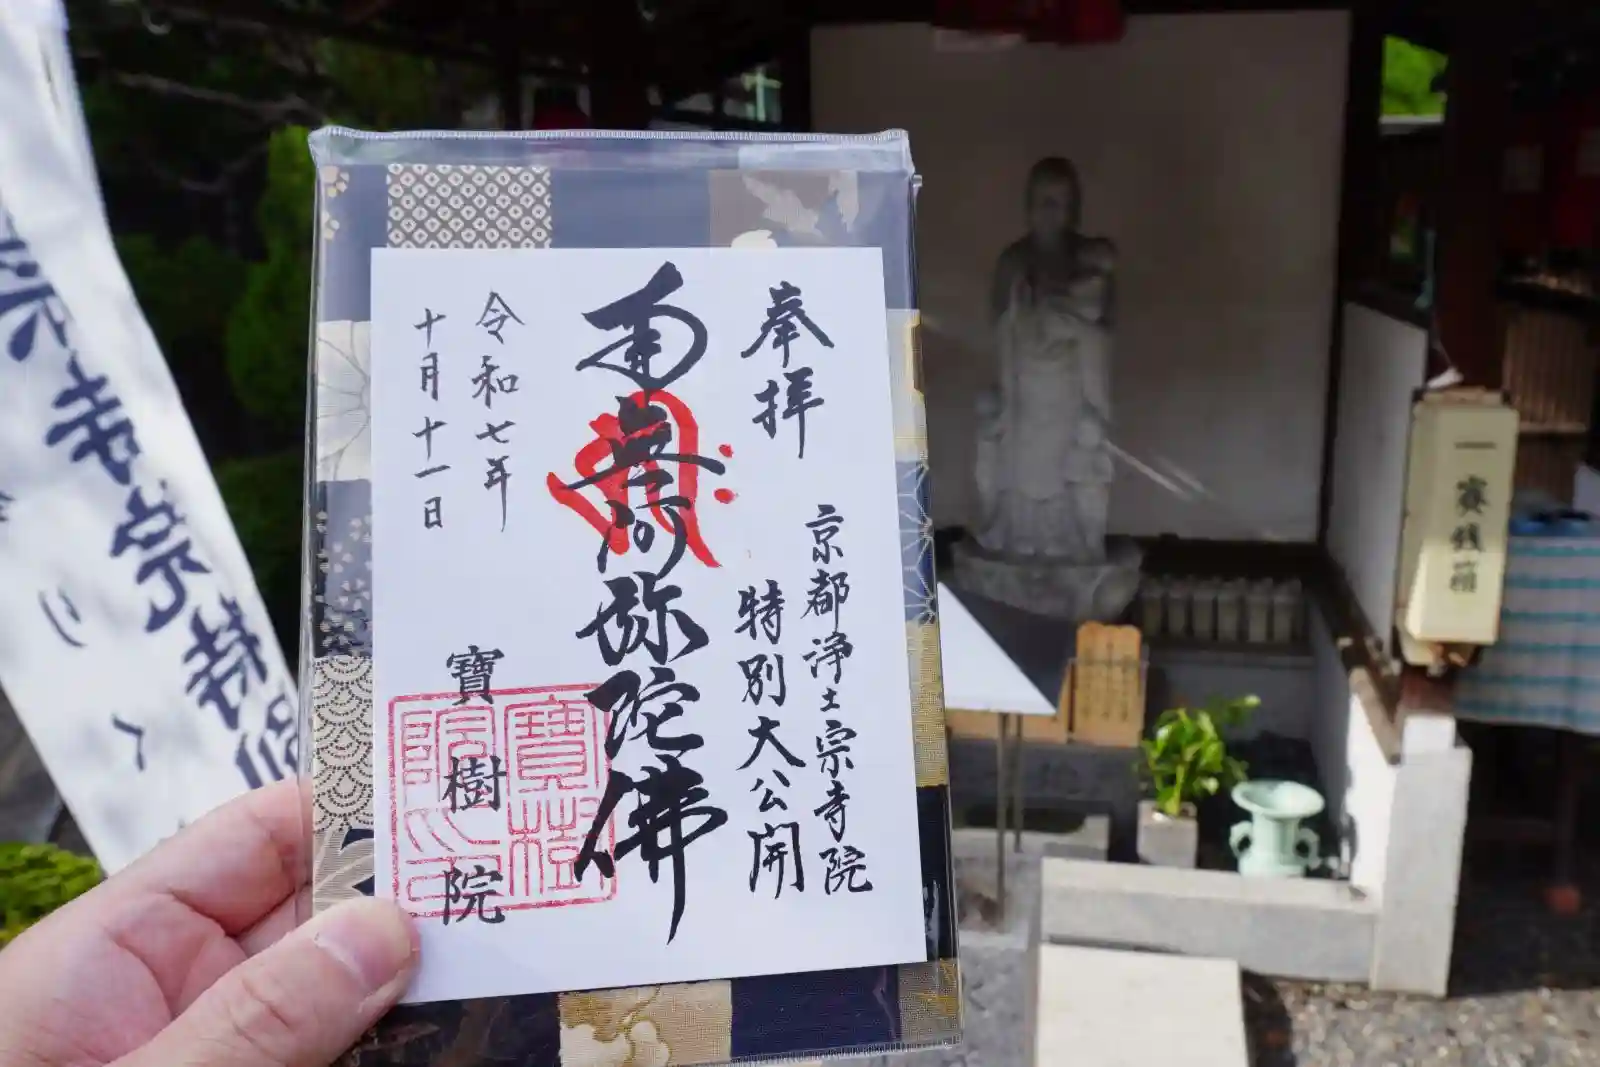 奉拝
京都浄土宗寺院
特別大公開
南無阿弥陀佛
令和七年
十月十一日
寶樹院
寶樹
院印
賽銭箱
宗寺宗特別